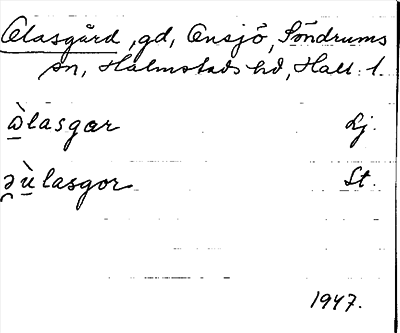 Olasgård, gd, Onsjö, Söndrums
sn, Halmstads hd, Hall. l.
ὼlasgær Lj.
əùlasgor St.
1947.